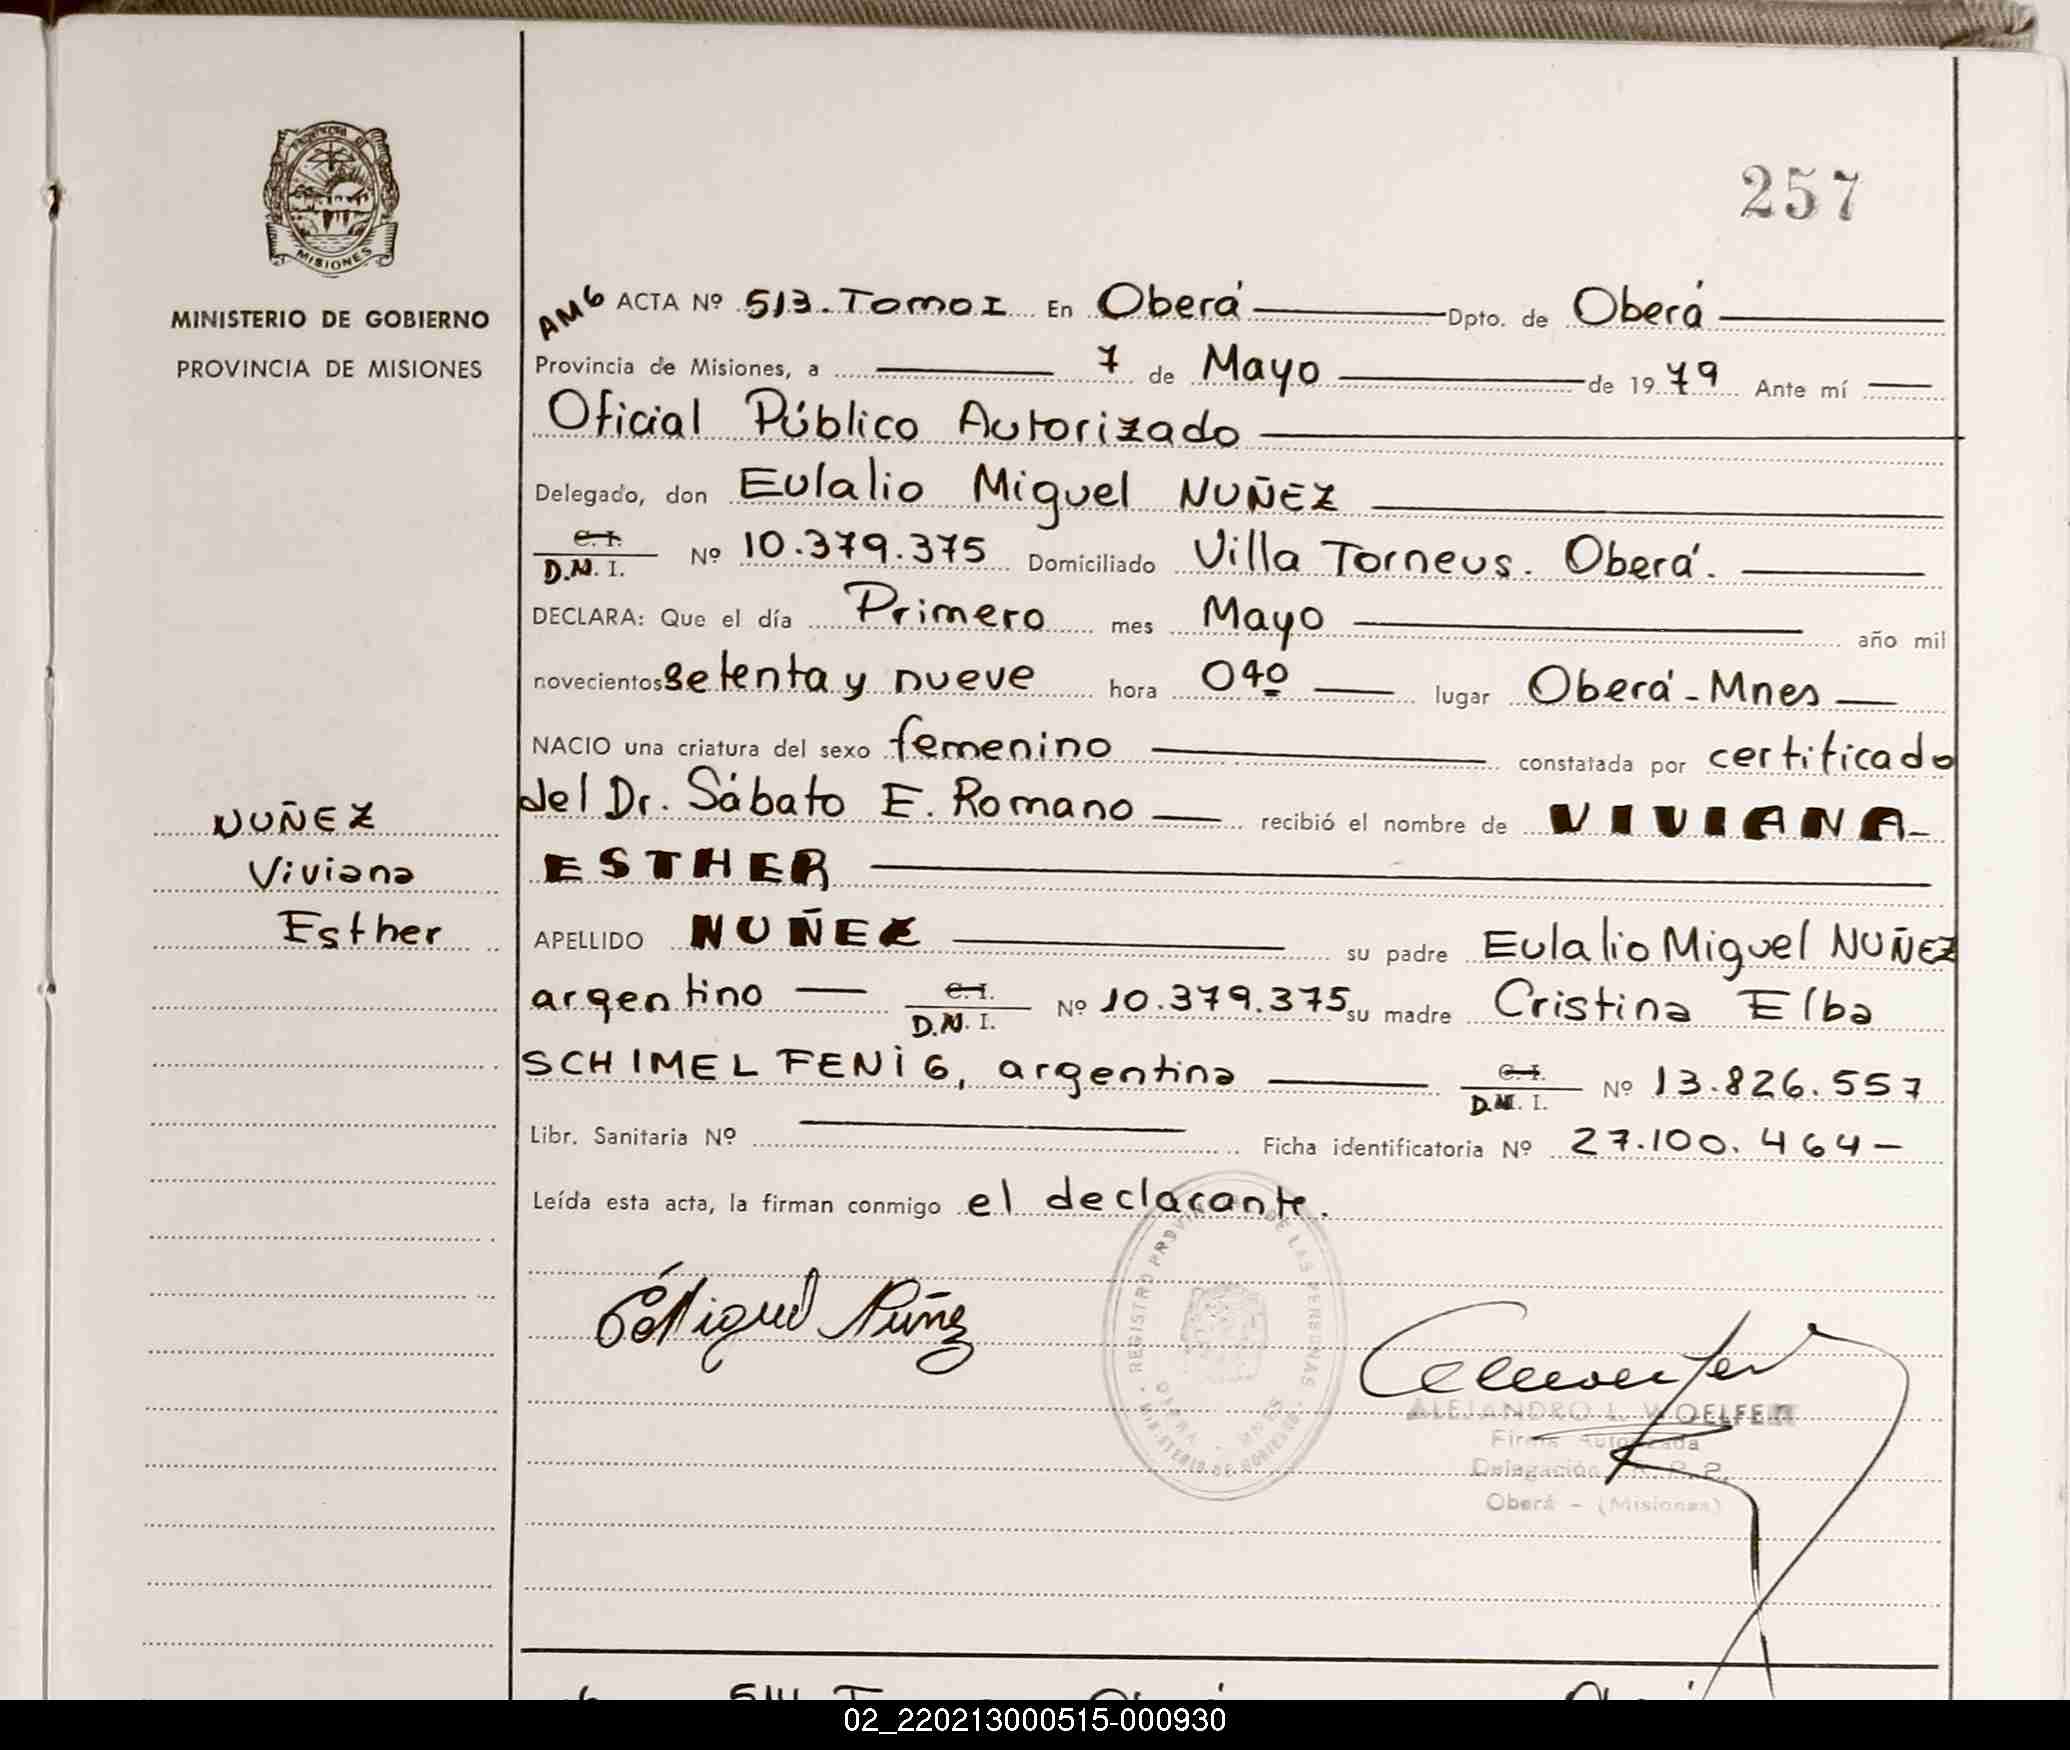 257
MISIONES
MINISTERIO DE GOBIERNO
PROVINCIA DE MISIONES
NUÑEZ
Viviana
Esther
AM6 ACTA Nº 513. Tomo I En Oberá Dpto. de Oberá
Provincia de Misiones, a 7 de Mayo de 1979 Ante mí
Oficial Público Autorizado
Delegado, don Eulalio Miguel NUÑEZ
C. I.
D.N. I. Nº 10.379.375 Domiciliado Villa Torneus. Oberá.
DECLARA: Que el día Primero mes Mayo año mil
novecientos setenta y nueve hora 04º lugar Oberá - Mnes
NACIO una criatura del sexo femenino constatada por certificado
del Dr. Sábato E. Romano recibió el nombre de VIVIANA-
ESTHER
APELLIDO NUÑEZ su padre Eulalio Miguel NUÑEZ
argentino C. I.
D.N. I. Nº 10.379.375 su madre Cristina Elba
SCHIMELFENIG, argentina C. I.
D.N. I. Nº 13.826.557
Libr. Sanitaria Nº Ficha identificatoria Nº 27.100.464-
Leída esta acta, la firman conmigo el declarante.
EMiguel Núñez
REGISTRO PROVINCIAL DE LAS PERSONAS
OBERA - MNES
MINISTERIO DE GOBIERNO
ALEJANDRO L. WOELFER
Firma Autorizada
Delegación R. P. P.
Oberá - (Misiones)
02_220213000515-000930